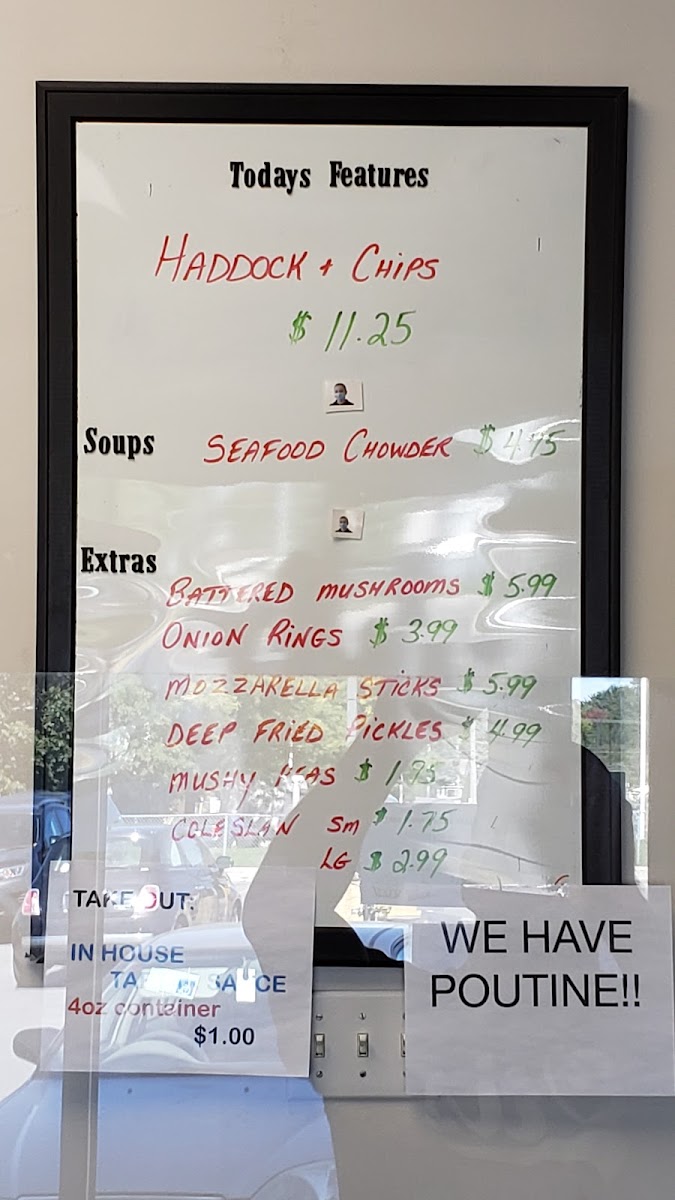 Todays Features
HADDOCK + CHIPS
$ 11.25
Soups SEAFOOD CHOWDER $ 4.75
Extras
BATTERED MUSHROOMS $ 5.99
ONION RINGS $ 3.99
MOZZARELLA STICKS $ 5.99
DEEP FRIED PICKLES $ 4.99
MUSHY PEAS $ 1.95
COLESLAW SM $ 1.75
LG $ 2.99
TAKE OUT:
IN HOUSE
SAUCE
4oz container
$1.00
WE HAVE
POUTINE!!